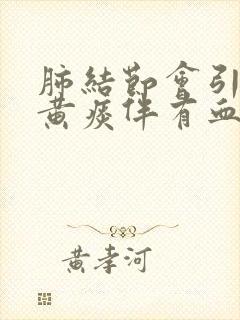 肺結節會引
黃痰伴有血
黃孝河